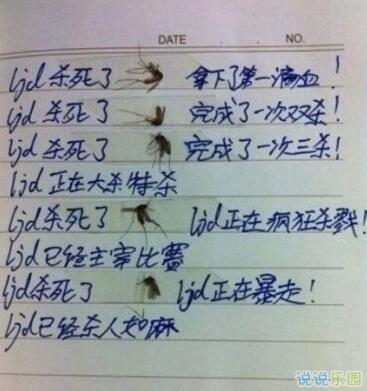 DATE . . NO.
ljd 杀死了 拿下了第一滴血!
ljd 杀死了 完成了一次双杀!
ljd 杀死了 完成了一次三杀!
ljd 正在大杀特杀
ljd 杀死了 ljd 正在疯狂杀戮!
ljd 已经主宰比赛
ljd 杀死了 ljd 正在暴走!
ljd 已经杀人如麻
说说乐园